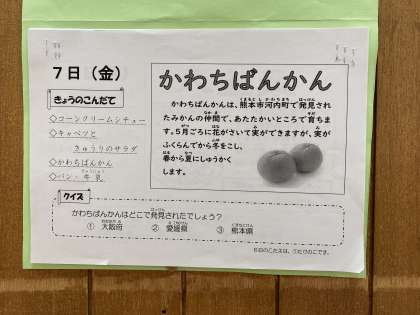 7日（金）
きょうのこんだて
◇コーンクリームシチュー
◇キャベツと
きゅうりのサラダ
◇かわちばんかん
◇パン・牛乳
かわちばんかん
かわちばんかんは、熊本市河内町で発見され
たみかんの仲間で、あたたかいところで育ちま
す。5月ごろに花がさいて実ができますが、実が
ふくらんでから冬をこし、
春から夏にしゅうかく
します。
クイズ
かわちばんかんはどこで発見されたでしょう？
① 大阪府 ② 愛媛県 ③ 熊本県